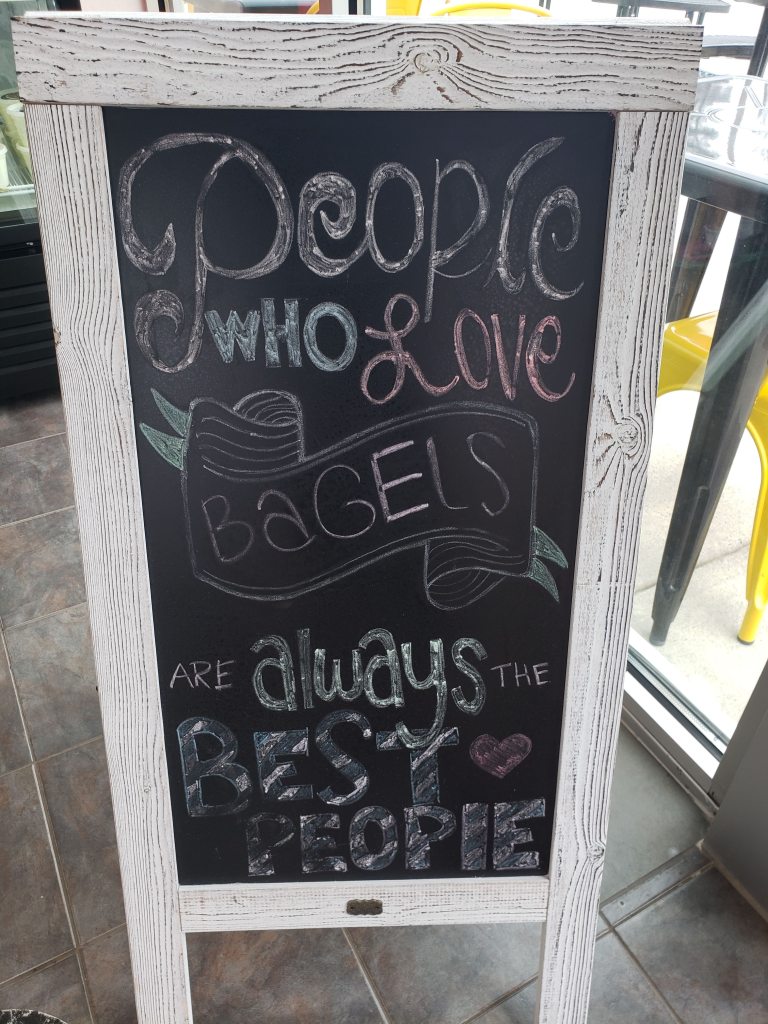 People
WHO Love
BaGELS
ARE always THE
BEST
PEOPlE